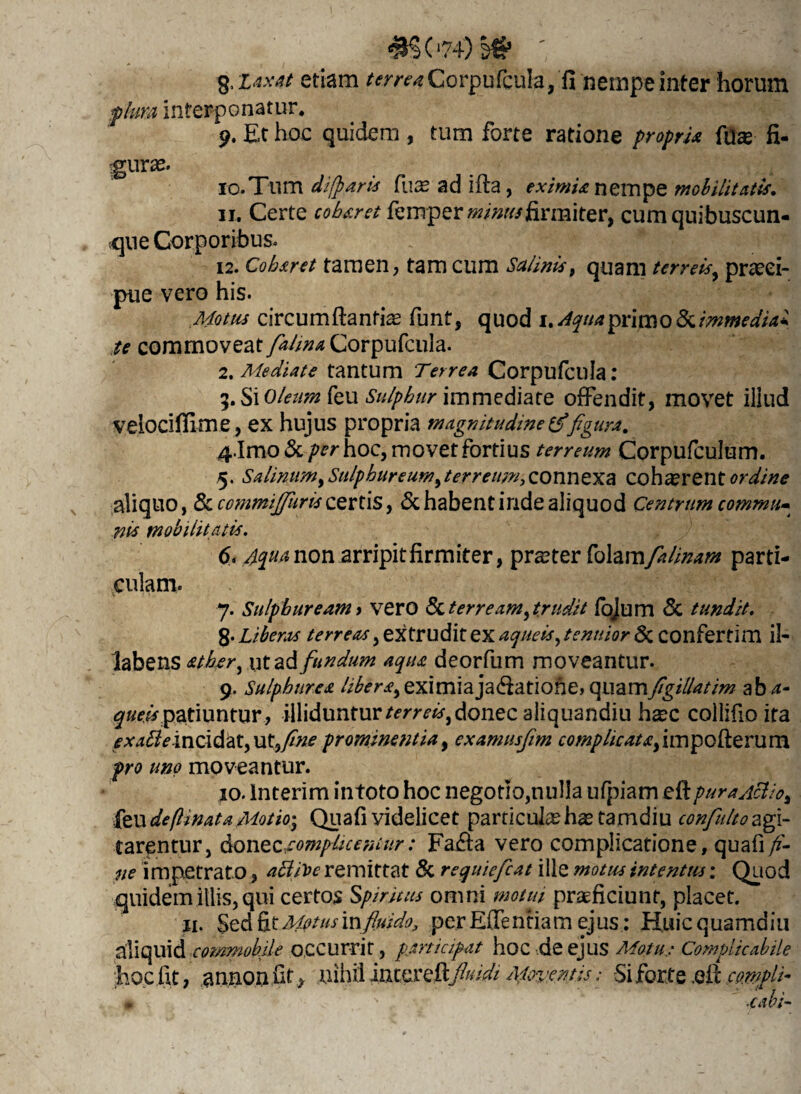 (174)
8. Laxat etiam terrea Corpuſcula, ſi nempe inter horum
plura interponatur.
9. Et hoc quidem, tum forte ratione propriæ ſuæ fi-
guræ.
10. Tum diſparis ſuæ ad iſta, eximiæ nempe mobilitatis.
11. Certe cohæret ſemper minus firmiter, cum quibuscun-
que Corporibus.
12. Cohæret tamen, tam cum Salinis, quam terreis, præci-
pue vero his.
Motus circumſtantiæ ſunt, quod 1. Aqua primo & immedia-
te commoveat ſalina Corpuſcula.
2. Mediate tantum Terrea Corpuſcula:
3. Si Oleum ſeu Sulphur immediate offendit, movet illud
velociſſime, ex hujus propria magnitudine & figura.
4. Imo & per hoc, movet fortius terreum Corpuſculum.
5. Salinum, Sulphureum, terreum, connexa cohærent ordine
aliquo, & commiſſuris certis, & habent inde aliquod Centrum commu-
nis mobilitatis.
6. Aqua non arripit firmiter, præter ſolam ſalinam parti-
culam.
7. Sulphuream, vero & terream, trudit ſolum & tundit.
8. Liberas terreas, extrudit ex aqueis, tenuior & confertim il-
labens æther, ut ad fundum aquæ deorſum moveantur.
9. Sulphureæ liberæ, eximia jactatione, quam ſigillatim ab a-
queis patiuntur, illiduntur terreis, donec aliquandiu hæc colliſio ita
exacte incidat, ut, ſine prominentia, examusſim complicatæ, impoſterum
pro uno moveantur.
10. Interim in toto hoc negotio, nulla uſpiam eſt pura Actio,
ſeu deſtinata Motio; Quaſi videlicet particulæ hæ tamdiu conſulto agi-
tarentur, donec complicentur: Facta vero complicatione, quaſi fi-
ne impetrato, active remittat & requieſcat ille motus intentus: Quod
quidem illis, qui certos Spiritus omni motui præficiunt, placet.
11. Sed fit Motus in fluido, per Eſſentiam ejus: Huic quamdiu
aliquid commobile occurrit, participat hoc de ejus Motu: Complicabile
hoc ſit, annon ſit, nihil intereſt fluidi Moventis: Si forte eſt compli-
cabi-